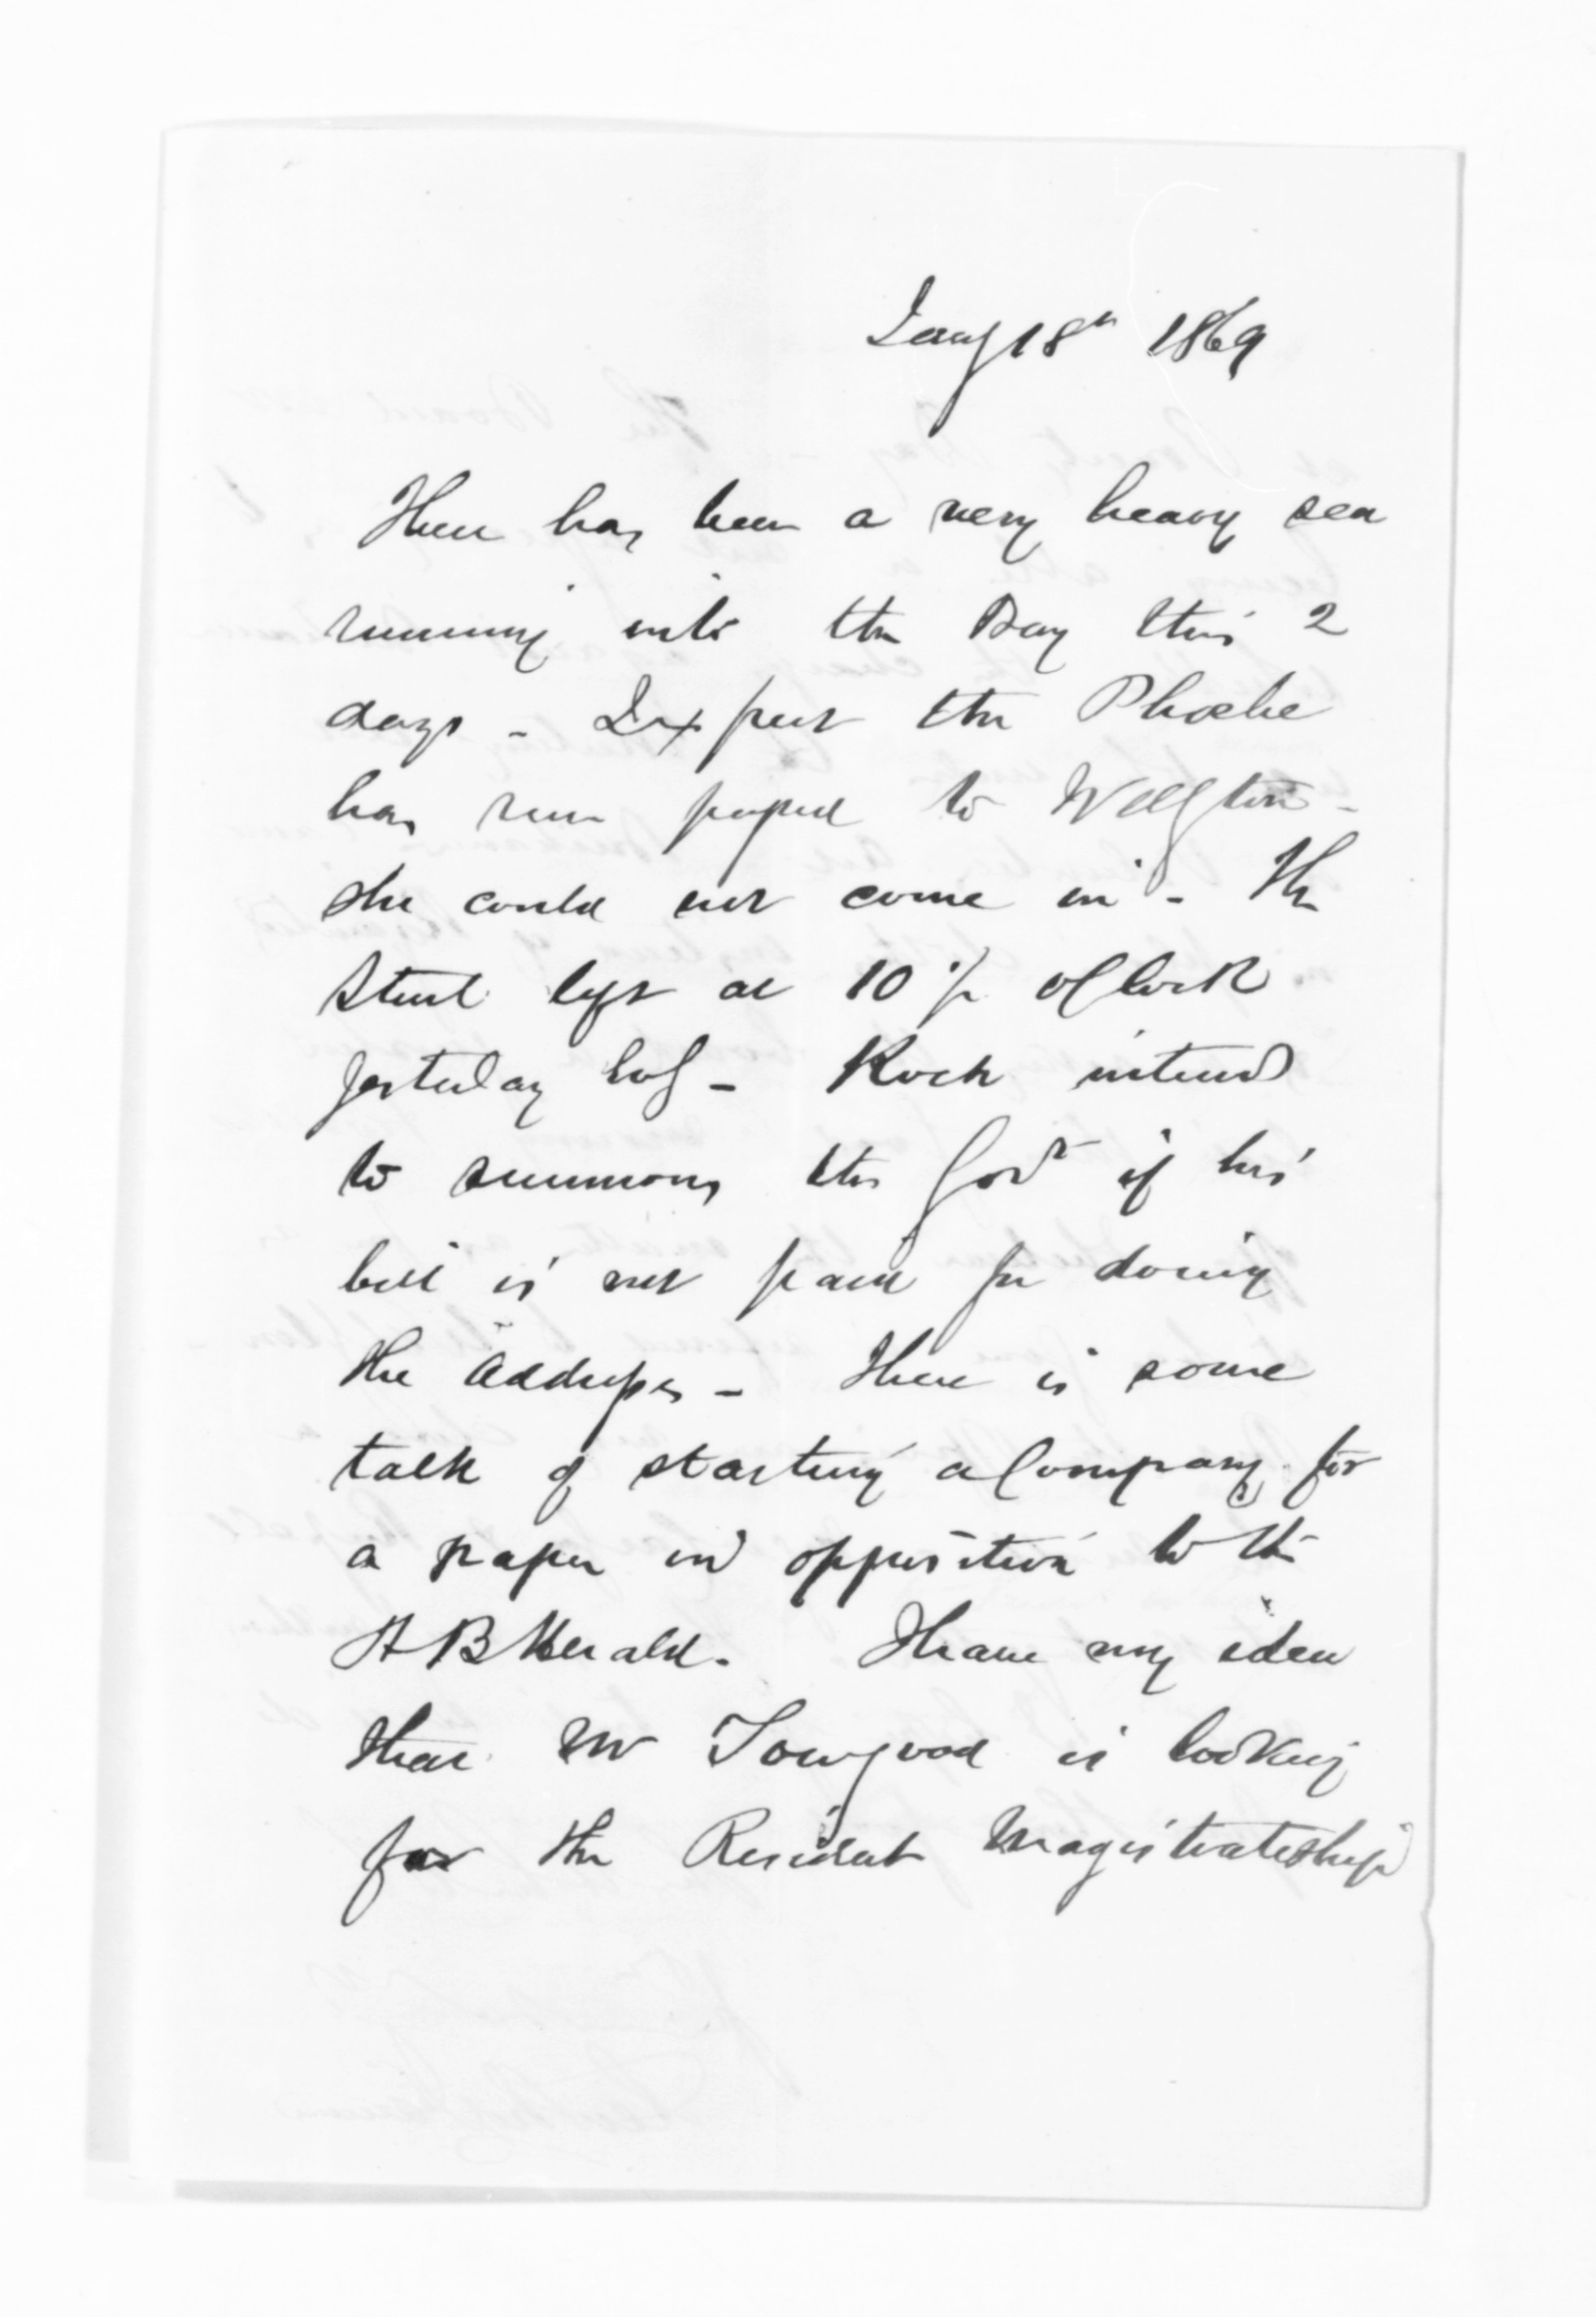 Jany 18th 1869
There has been a very heavy sea
running into the Bay this 2
days - I expect the Phoebe
has run passed to Wellgton -
she could not come in - The
Sturt left at 10 1/2 oClock
yesterday - Koch intends
to summons the Govt if his
bill is not paid for doing
the Addresses - There is some
talk of starting a Company for
a paper in opposition to the
H B Herald. I have my idea
that Mr Towgood is looking
for the Resident Magistrateship